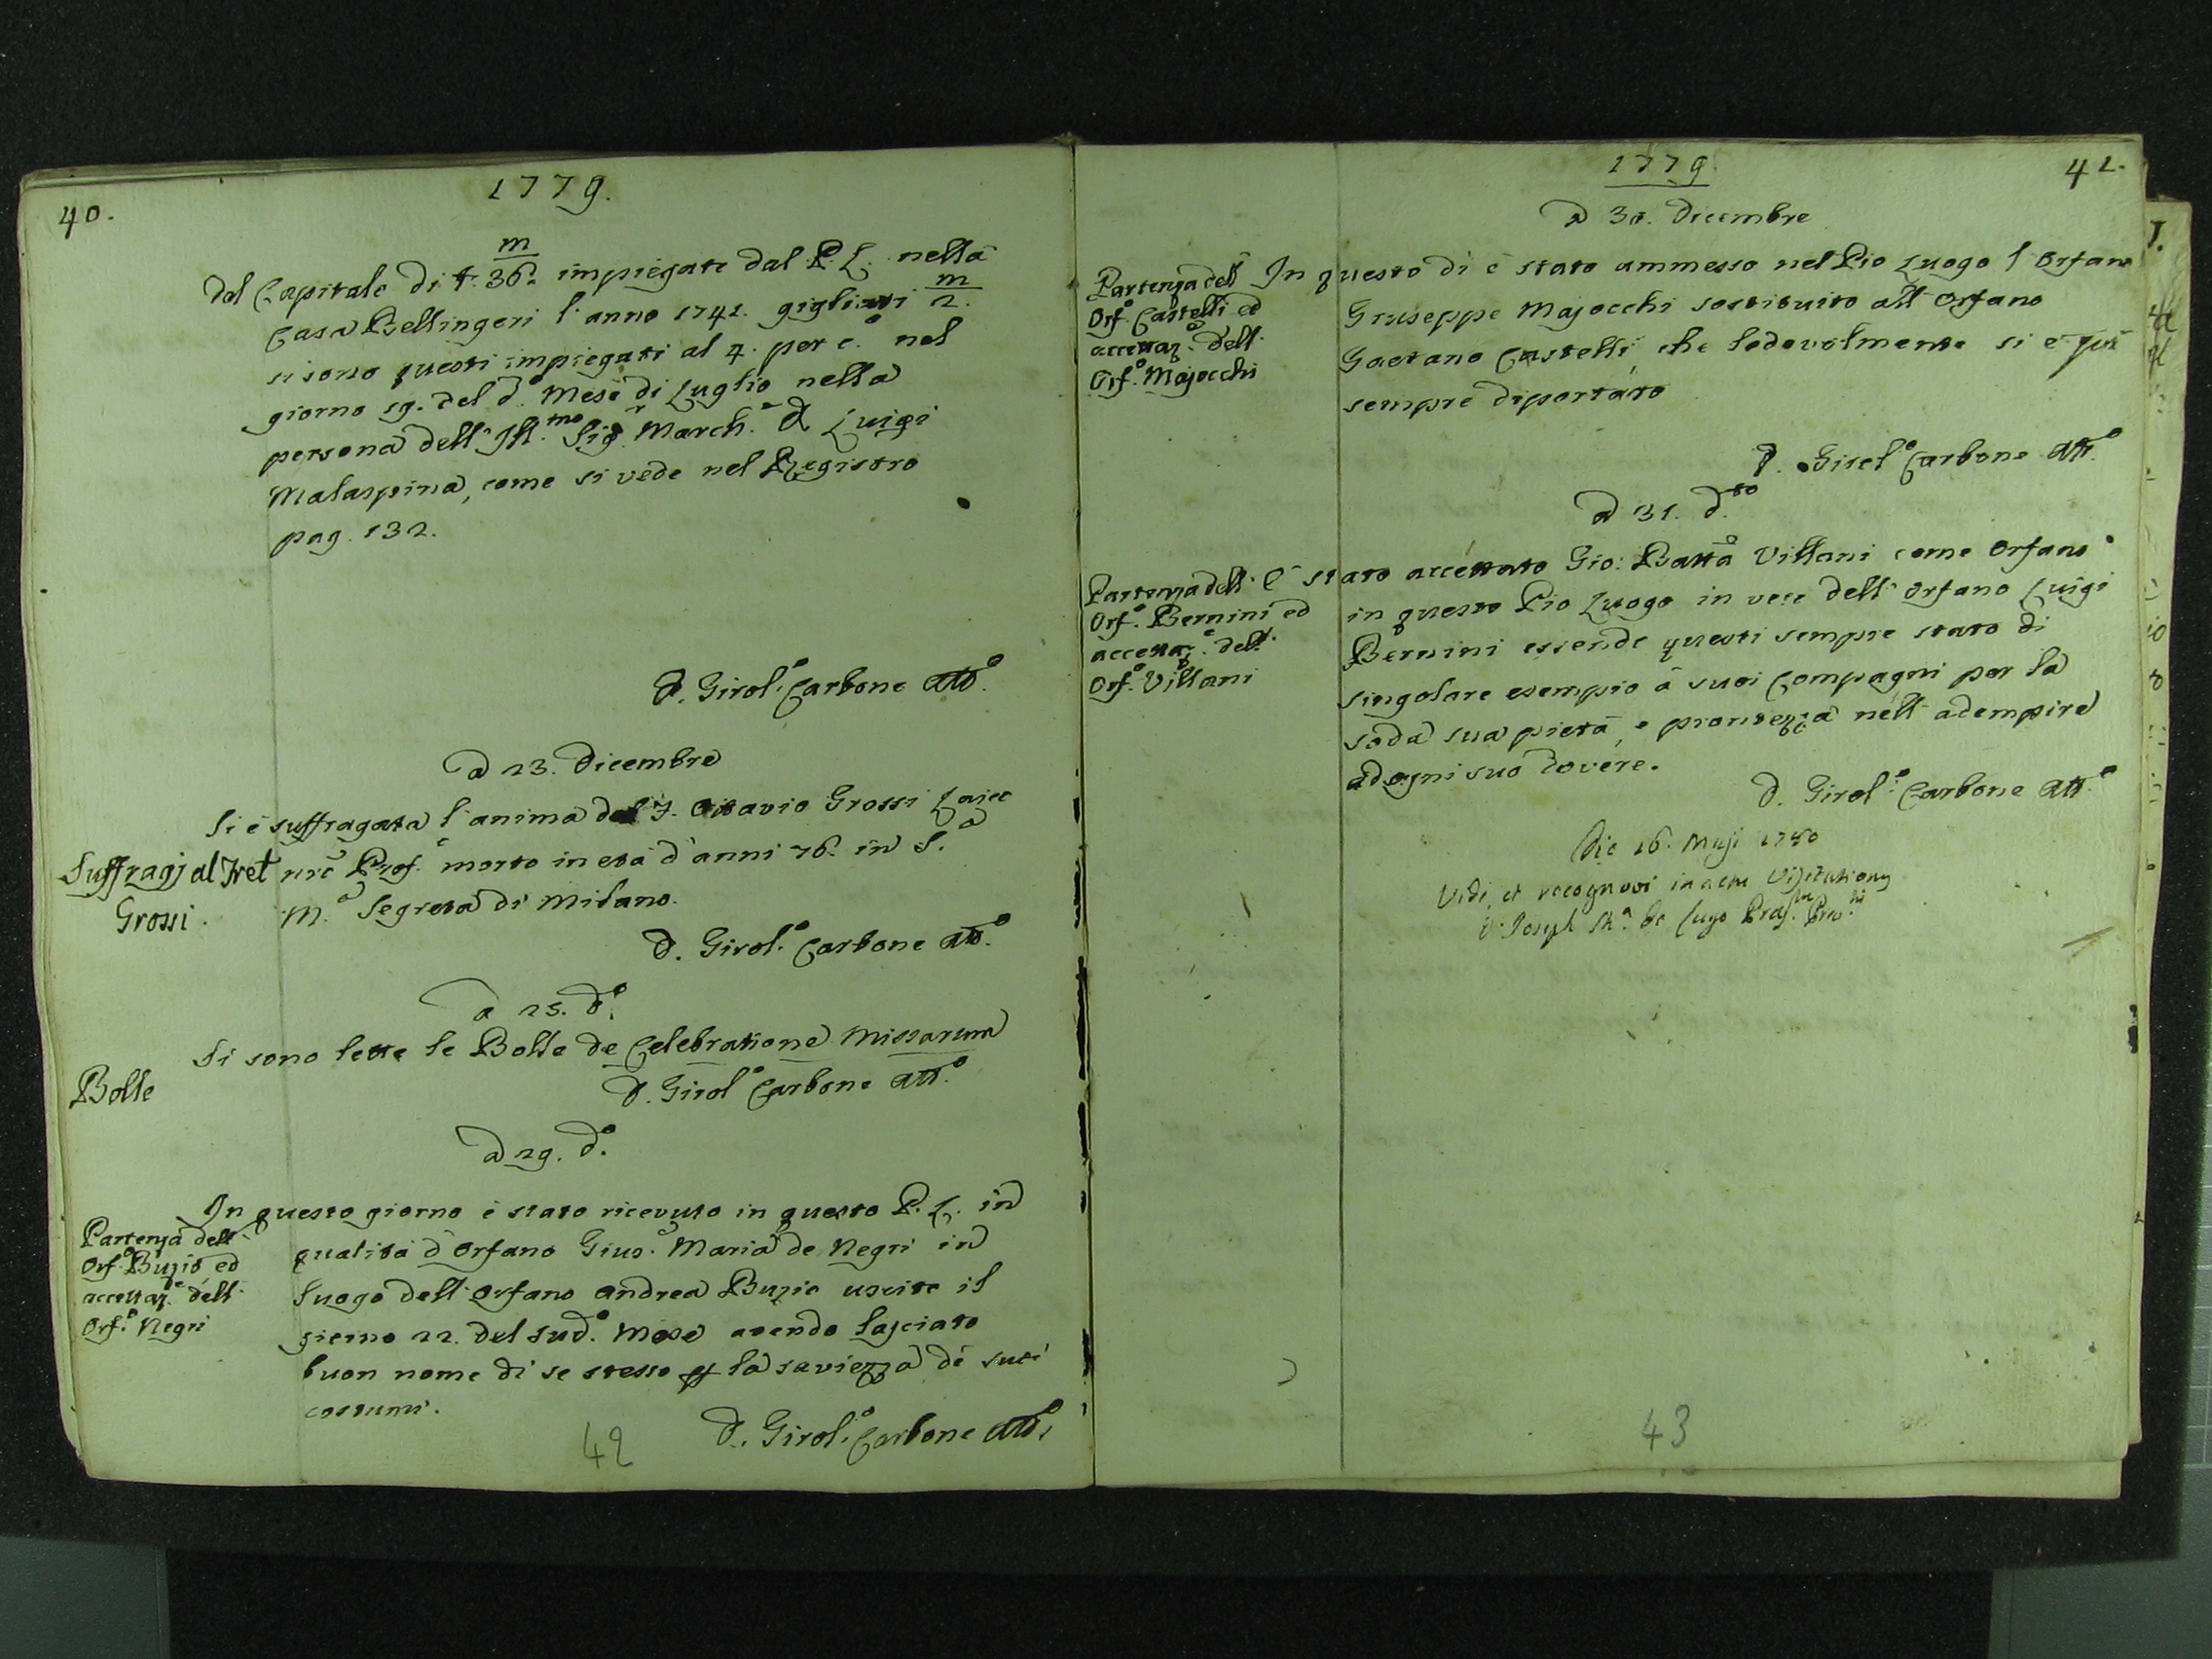 40.
1779.
Del Capitale di £. 36.m impiegate dal P. L. nella
Casa Bellingeri l'anno 1741. gigliati 2.m
si sono questi impiegati al 4. per c.o nel
giorno 19. del d.o Mese di Luglio nella
persona dell'Ill.mo Sig.r March.e D. Luigi
Malaspina, come si vede nel Registro
pag. 132.
D. Girol.o Carbone Att.o
a 23. Dicembre
Si è suffragata l'anima del F. Ottavio Grossi Laico
Suffragj al Frēt
Grossi.
nrō Prof.o morto in età d'anni 76. in S.a
M.a Segreta di Milano.
D. Girol.o Carbone Att.o
a 25. d.o
Si sono lette le Bolle de Celebratione Missarum
Bolle
D. Girol.o Carbone Att.o
a 29. d.o
In questo giorno è stato ricevuto in questo P. L. in
Partenza dell'
Orf.o Buzio ed
accettaz.e dell'
Orf.o Negri
qualità d'Orfano Gius.e Maria de Negri in
luogo dell'Orfano Andrea Buzio uscito il
giorno 22. del sud.o Mese avendo lasciato
buon nome di se stesso p la saviezza dè suoi
costumi.
D. Girol.o Carbone Att.o
42
1779.
41.
a 30. Dicembre
Partenza dell'
Orf.o Castelli ed
accettaz.e dell'
Orf.o Majocchi
In questo dì è stato ammesso nel Pio Luogo l'Orfano
Giuseppe Majocchi sostituito all'Orfano
Gaetano Castelli che lodevolmente si è quì
sempre diportato
D. Girol.o Carbone Att.o
a 31. d.to
Partenza dell'
Orf.o Bernini ed
accettaz.e dell'
Orf.o Villani
È stato accettato Gio: Batta Villani come Orfano
in questo Pio Luogo in vece dell'Orfano Luigi
Bernini essendo questi sempre stato di
singolare esempio à suoi Compagni per la
soda sua pietà, e prontezza nell'adempire
ad ogni suo dovere.
D. Girol.o Carbone Att.o
Die 16. Maji 1780
Vidi, et recognovi in actu Visitationis
D. Joseph de Lugo
43